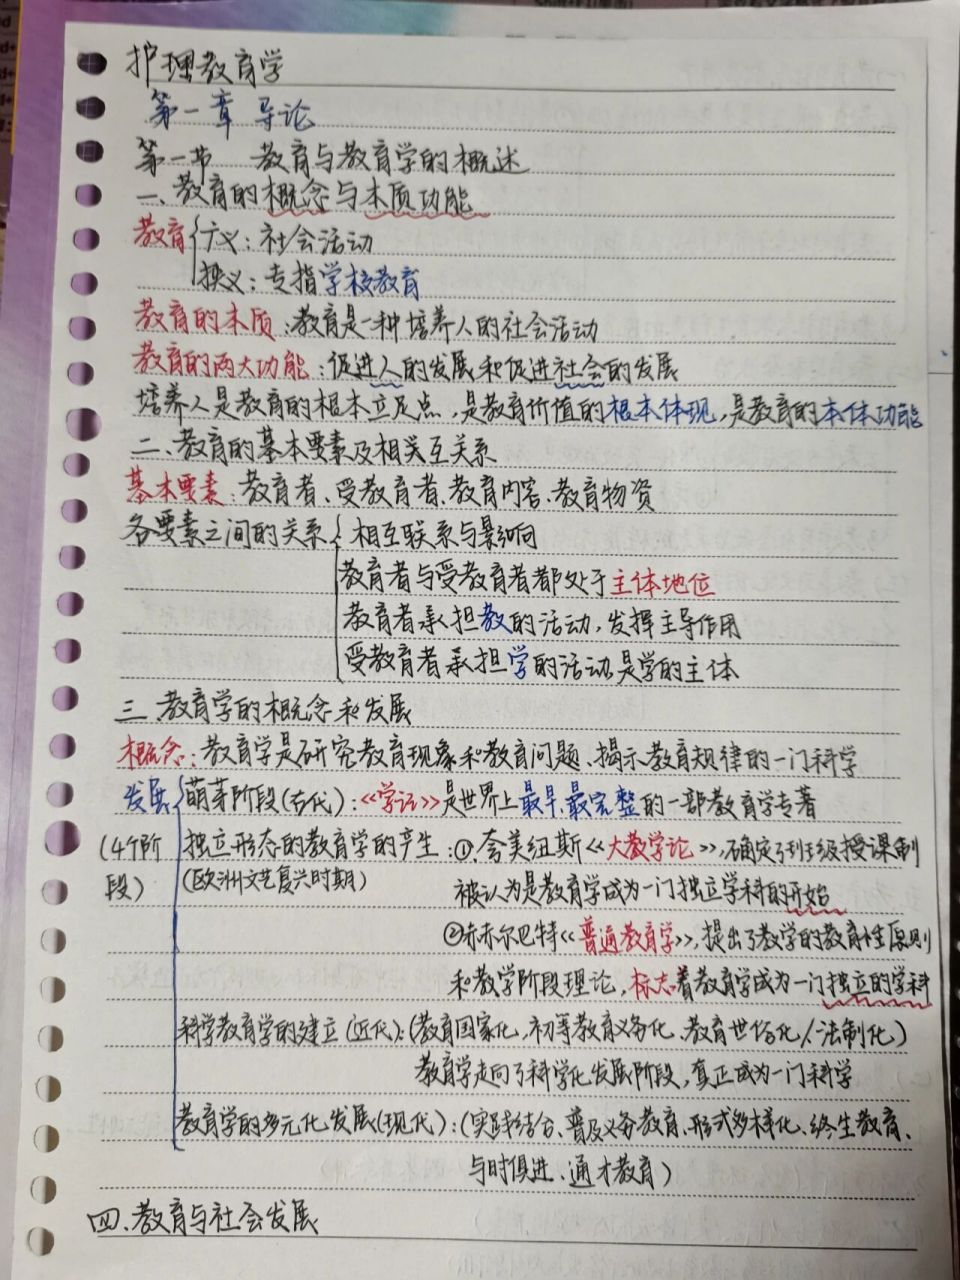 护理教育学
第一章 导论
第一节 教育与教育学的概述
一、教育的概念与本质功能
教育{广义:社会活动
狭义:专指学校教育
教育的本质:教育是一种培养人的社会活动
教育的两大功能:促进人的发展和促进社会的发展
培养人是教育的根本立足点,是教育价值的根本体现,是教育的本体功能
二、教育的基本要素及相关互关系
基本要素:教育者、受教育者、教育内容、教育物资
各要素之间的关系{相互联系与影响
教育者与受教育者都处于主体地位
教育者承担教的活动,发挥主导作用
受教育者承担学的活动,是学的主体
三、教育学的概念和发展
概念:教育学是研究教育现象和教育问题、揭示教育规律的一门科学
发展{萌芽阶段(古代):《学记》是世界上最早、最完整的一部教育学专著
(4个阶段)
独立形态的教育学的产生:①夸美纽斯《大教学论》,确定了班级授课制
(欧洲文艺复兴时期)
被认为是教育学成为一门独立学科的开始
②赤赤尔巴特《普通教育学》,提出了教学的教育性原则
和教学阶段理论,标志着教育学成为一门独立的学科
科学教育学的建立(近代):(教育国家化、初等教育义务化、教育世俗化、法制化)
教育学走向了科学化发展阶段,真正成为一门科学
教育学的多元化发展(现代):(实践结合、普及义务教育、形式多样化、终生教育、
与时俱进、通才教育)
四、教育与社会发展